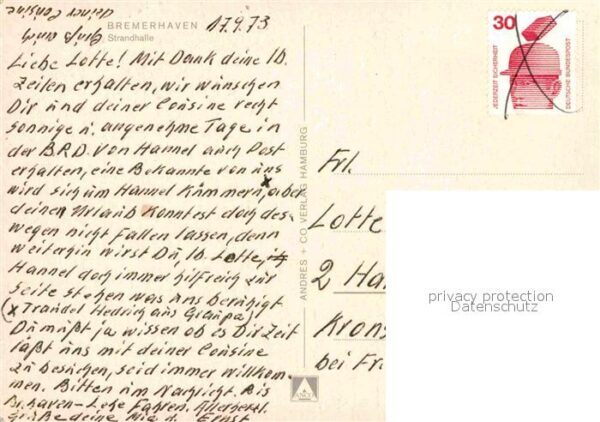 BREMERHAVEN
Strandhalle
17.9.73
Liebe Lotte! Mit Dank deine lb.
Zeilen erhalten, wir wünschen
Dir und deiner Cousine recht
sonnige u. angenehme Tage in
der B.R.D. Von Hannel auch Post
erhalten, eine Bekannte von uns
wird sich um Hannel kümmern, aber
deinen Urlaub konntest doch des-
wegen nicht fallen lassen, denn
weiterhin wirst Du, lb. Lotte,
Hannel doch immer hilfreich zur
Seite stehen was uns beruhigt
(x Traudel Hedrich aus Graupa)
Du mußt ja wissen ob es Dir Zeit
läßt uns mit deiner Cousine
zu besuchen, seid immer willkom-
men. Bitten um Nachricht. Bis
Br.haven-Lehe fahren. Allerherzl.
Grüße deine Mia u. Ernst
Gruß auch
deiner Cousine
ANDRES + CO VERLAG HAMBURG
30
JEDERZEIT SICHERHEIT
DEUTSCHE BUNDESPOST
Frl.
Lotte
2 Ha
Krons
bei Fr.
privacy protection
Datenschutz